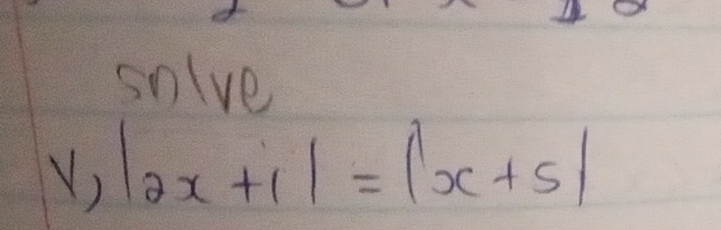 solve
v, |2x + 1| = |x + 5|